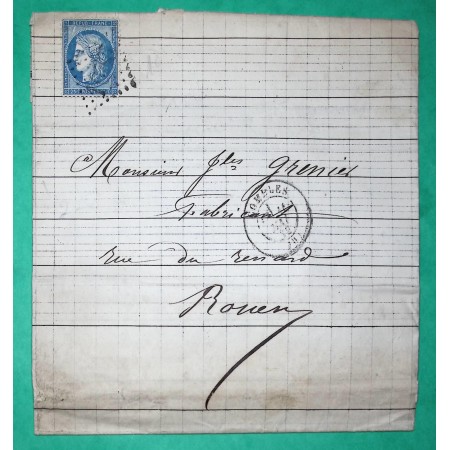 REPUB. FRANC.
a Monsieur fles Grenier
Fabricant
rue du renard
Rouen